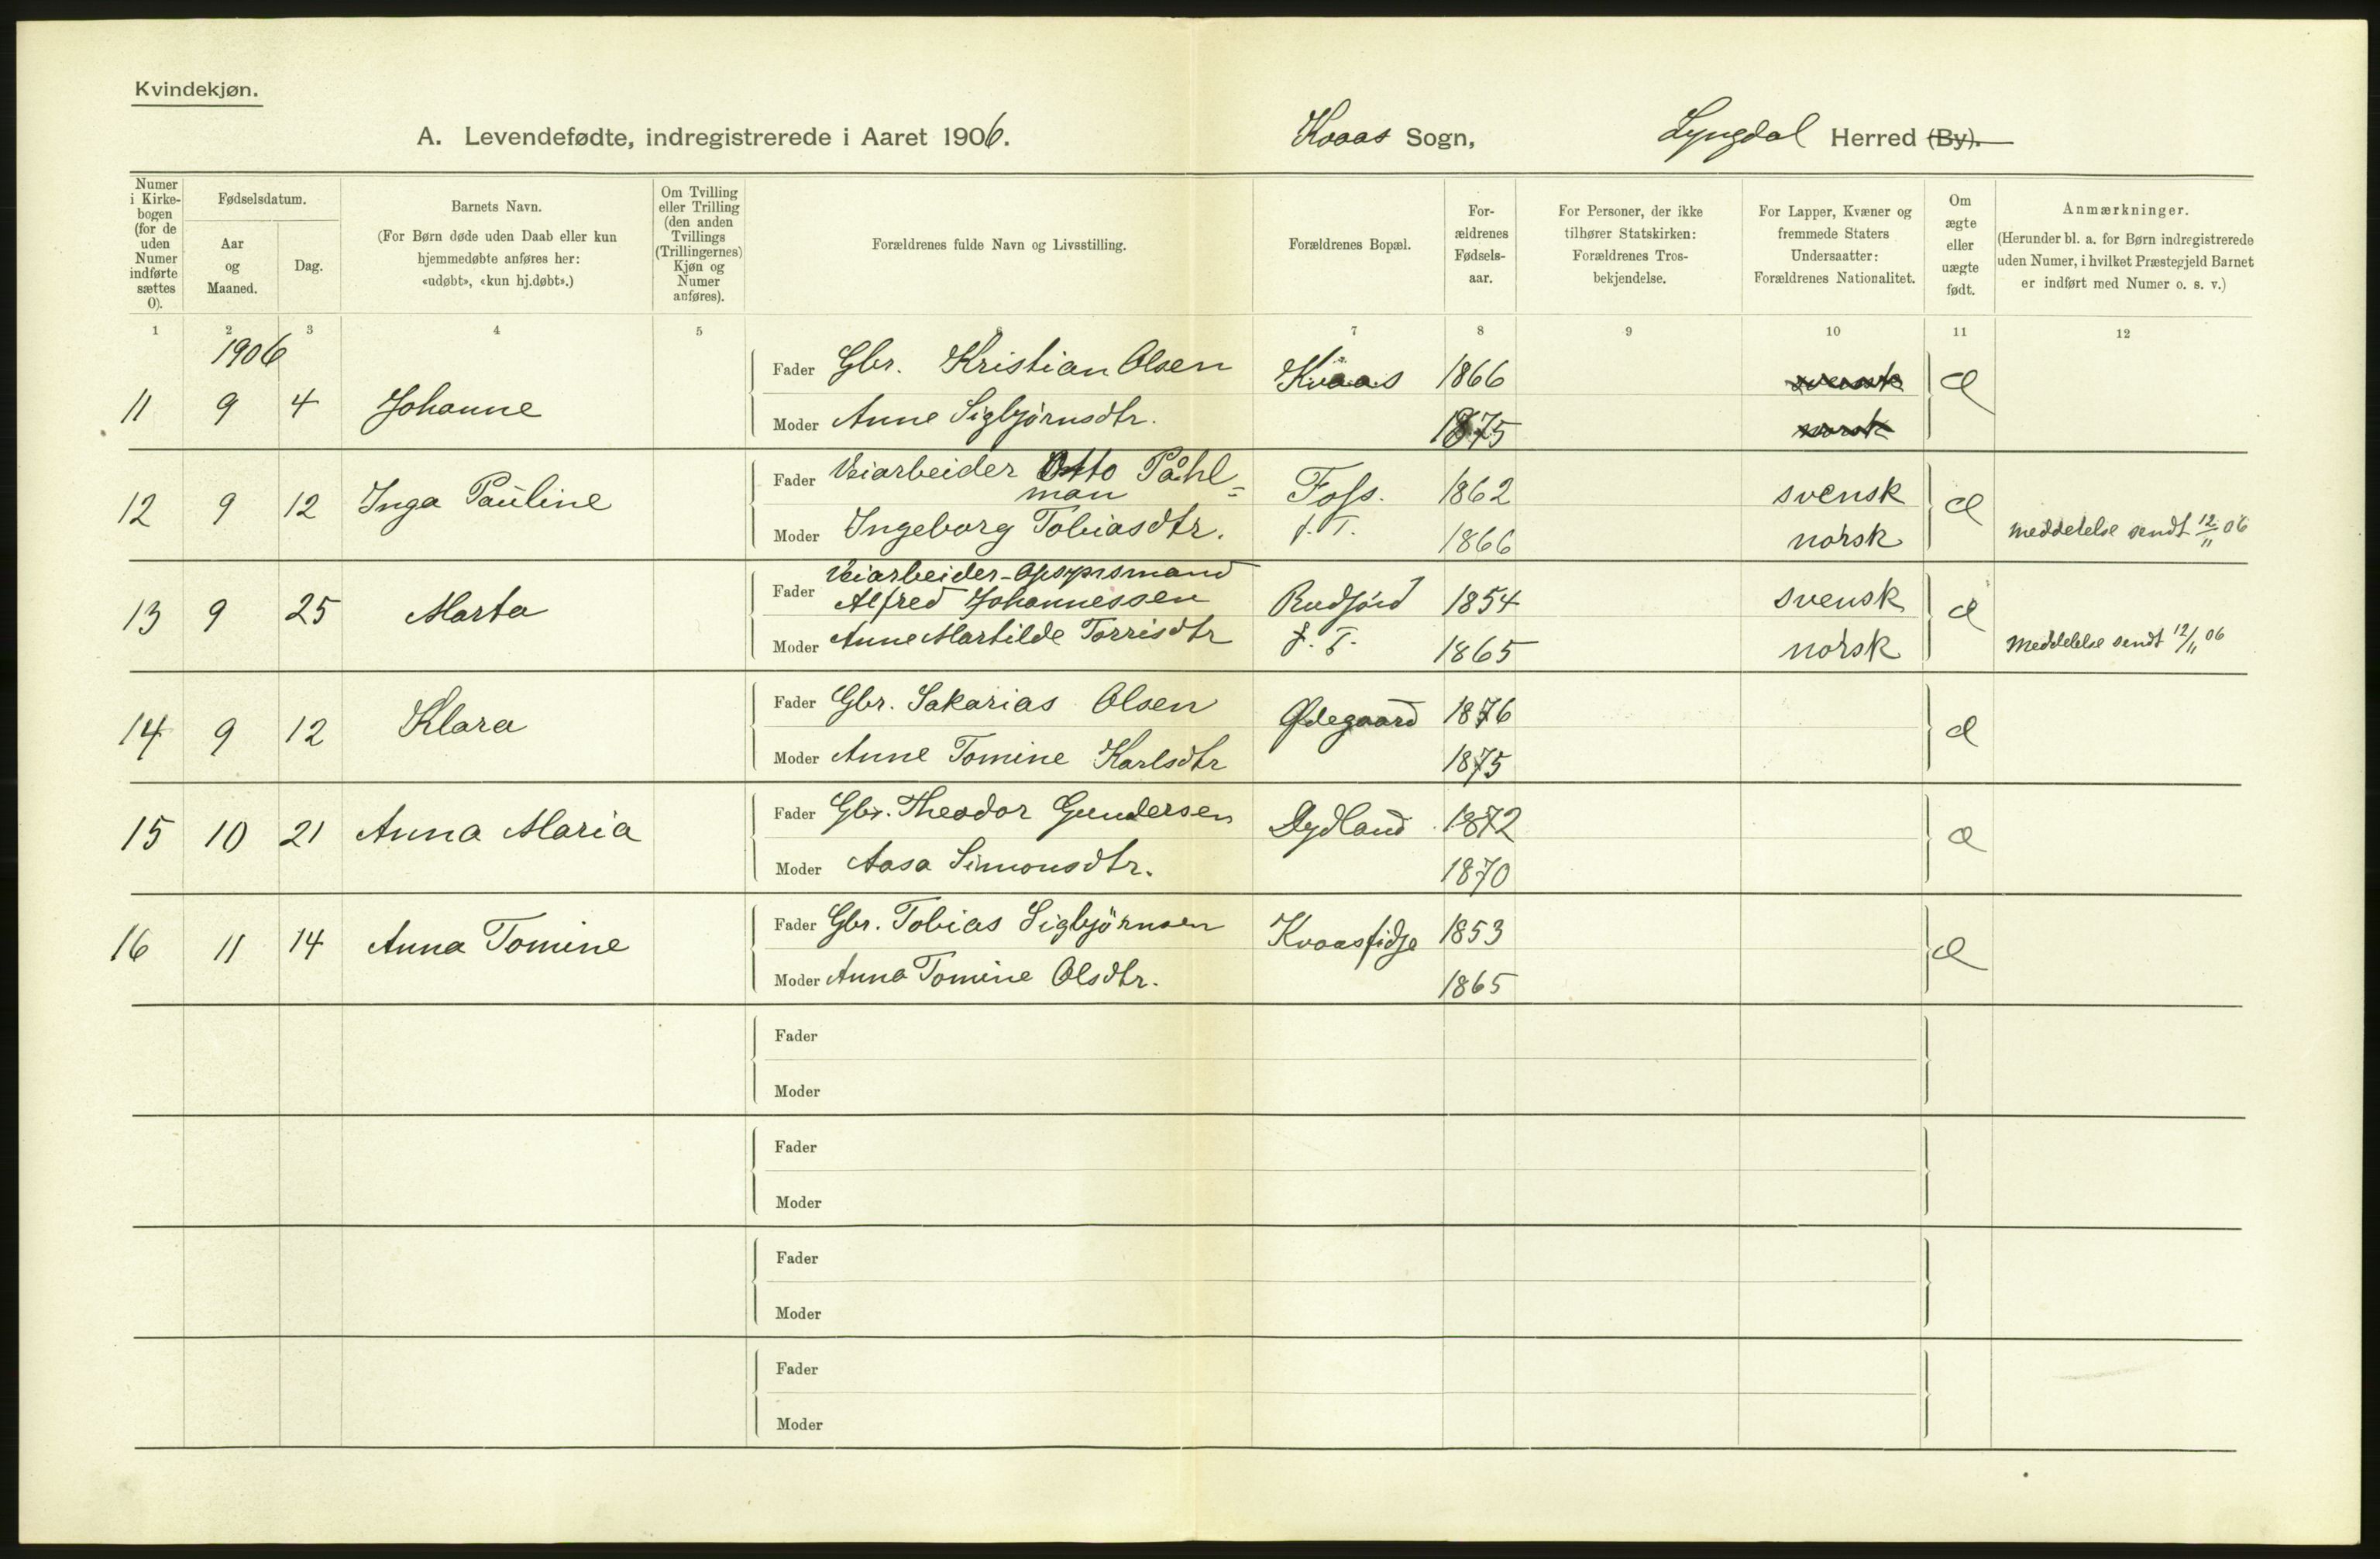 Kvindekjøn.
A. Levendefødte, indregistrerede i Aaret 1906. Kvaas Sogn, Lyngdal Herred (By).
Numer i Kirke-bogen (for de uden Numer indførte sættes 0).
Fødselsdatum.
Aar og Maaned.
Dag.
Barnets Navn.
(For Børn døde uden Daab eller kun hjemmedøbte anføres her: «udøbt», «kun hj.døbt».)
Om Tvilling eller Trilling (den anden Tvillings (Trillingernes) Kjøn og Numer anføres).
Forældrenes fulde Navn og Livsstilling.
Forældrenes Bopæl.
For-ældrenes Fødsels-aar.
For Personer, der ikke tilhører Statskirken: Forældrenes Tros-bekjendelse.
For Lapper, Kvæner og fremmede Staters Undersaatter: Forældrenes Nationalitet.
Om ægte eller uægte født.
Anmærkninger.
(Herunder bl. a. for Børn indregistrerede uden Numer, i hvilket Præstegjeld Barnet er indført med Numer o. s. v.)
1 2 3 4 5 6 7 8 9 10 11 12
1906
11 9 4 Johanne Fader Gbr. Kristian Olsen Kvaas 1866 svensk æ
Moder Anne Sigbjørnsdtr. 1875 norsk
12 9 12 Inga Pauline Fader Veiarbeider Otto Påhl=
man Foss. 1862 svensk æ
Moder Ingeborg Tobiasdtr. f. T. 1866 norsk Meddelelse sendt 12/11 06
13 9 25 Marta Fader Veiarbeider-Opsynsmand
Alfred Johannessen Rudjord 1854 svensk æ
Moder Anne Martilde Torrisdtr f. T. 1865 norsk Meddelelse sendt 12/11 06
14 9 12 Klara Fader Gbr. Sakarias Olsen Ødegaard 1876 æ
Moder Anne Tomine Karlsdtr 1875
15 10 21 Anna Maria Fader Gbr. Theodor Gundersen Dydland 1872 æ
Moder Aasa Simonsdtr. 1870
16 11 14 Anna Tomine Fader Gbr. Tobias Sigbjörnsen Kvaasfidje 1853 æ
Moder Anna Tomine Olsdtr. 1865
Fader
Moder
Fader
Moder
Fader
Moder
Fader
Moder